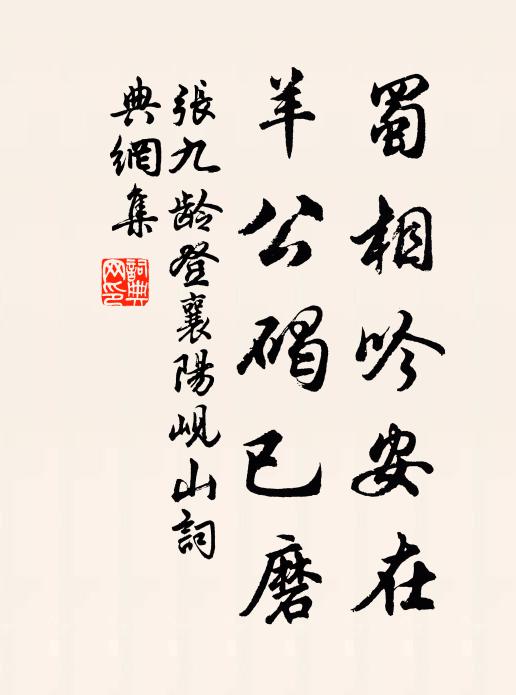 蜀相吟安在
羊公碣已磨
張九龄登襄陽峴山詞
典網集
詞典網印